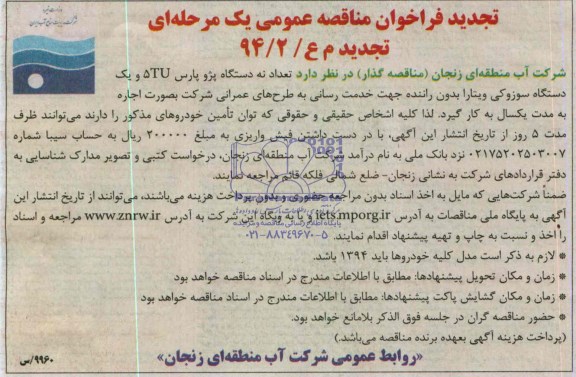 تجدید فراخوان مناقصه عمومی یک مرحله‌ای
تجدید م ع/ ۹۴/۲
شرکت آب منطقه‌ای زنجان (مناقصه گذار) در نظر دارد تعداد نه دستگاه پژو پارس ۵TU و یک
دستگاه سوزوکی ویتارا بدون راننده جهت خدمت رسانی به طرح‌های عمرانی شرکت بصورت اجاره
به مدت یکسال به کار گیرد. لذا کلیه اشخاص حقیقی و حقوقی که توان تأمین خودروهای مذکور را دارند می‌توانند ظرف
مدت ۵ روز از تاریخ انتشار این آگهی، با در دست داشتن فیش واریزی به مبلغ ۲۰۰۰۰۰ ریال به حساب سیبا شماره
۰۲۱۷۵۲۰۲۵۰۳۰۰۷ نزد بانک ملی به نام درآمد شرکت آب منطقه‌ای زنجان، درخواست کتبی و تصویر مدارک شناسایی به
دفتر قراردادهای شرکت به نشانی زنجان- ضلع شمالی فلکه قائم مراجعه نمایند.
ضمناً شرکت‌هایی که مایل به اخذ اسناد بدون مراجعه حضوری و بدون پرداخت هزینه می‌باشند، می‌توانند از تاریخ انتشار این
آگهی به پایگاه ملی مناقصات به آدرس iets.mporg.ir و یا به وبگاه این شرکت به آدرس www.znrw.ir مراجعه و اسناد
را اخذ و نسبت به چاپ و تهیه پیشنهاد اقدام نمایند.
پایگاه اطلاع رسانی مناقصه و مزایده
۰۲۱-۸۸۳۴۹۶۷۰-۵
* لازم به ذکر است مدل کلیه خودروها باید ۱۳۹۴ باشد.
* زمان و مکان تحویل پیشنهادها: مطابق با اطلاعات مندرج در اسناد مناقصه خواهد بود
* زمان و مکان گشایش پاکت پیشنهادها: مطابق با اطلاعات مندرج در اسناد مناقصه خواهد بود
* حضور مناقصه گران در جلسه فوق الذکر بلامانع خواهد بود.
(پرداخت هزینه آگهی بعهده برنده مناقصه می‌باشد.)
«روابط عمومی شرکت آب منطقه‌ای زنجان»
۹۹۶۰/س